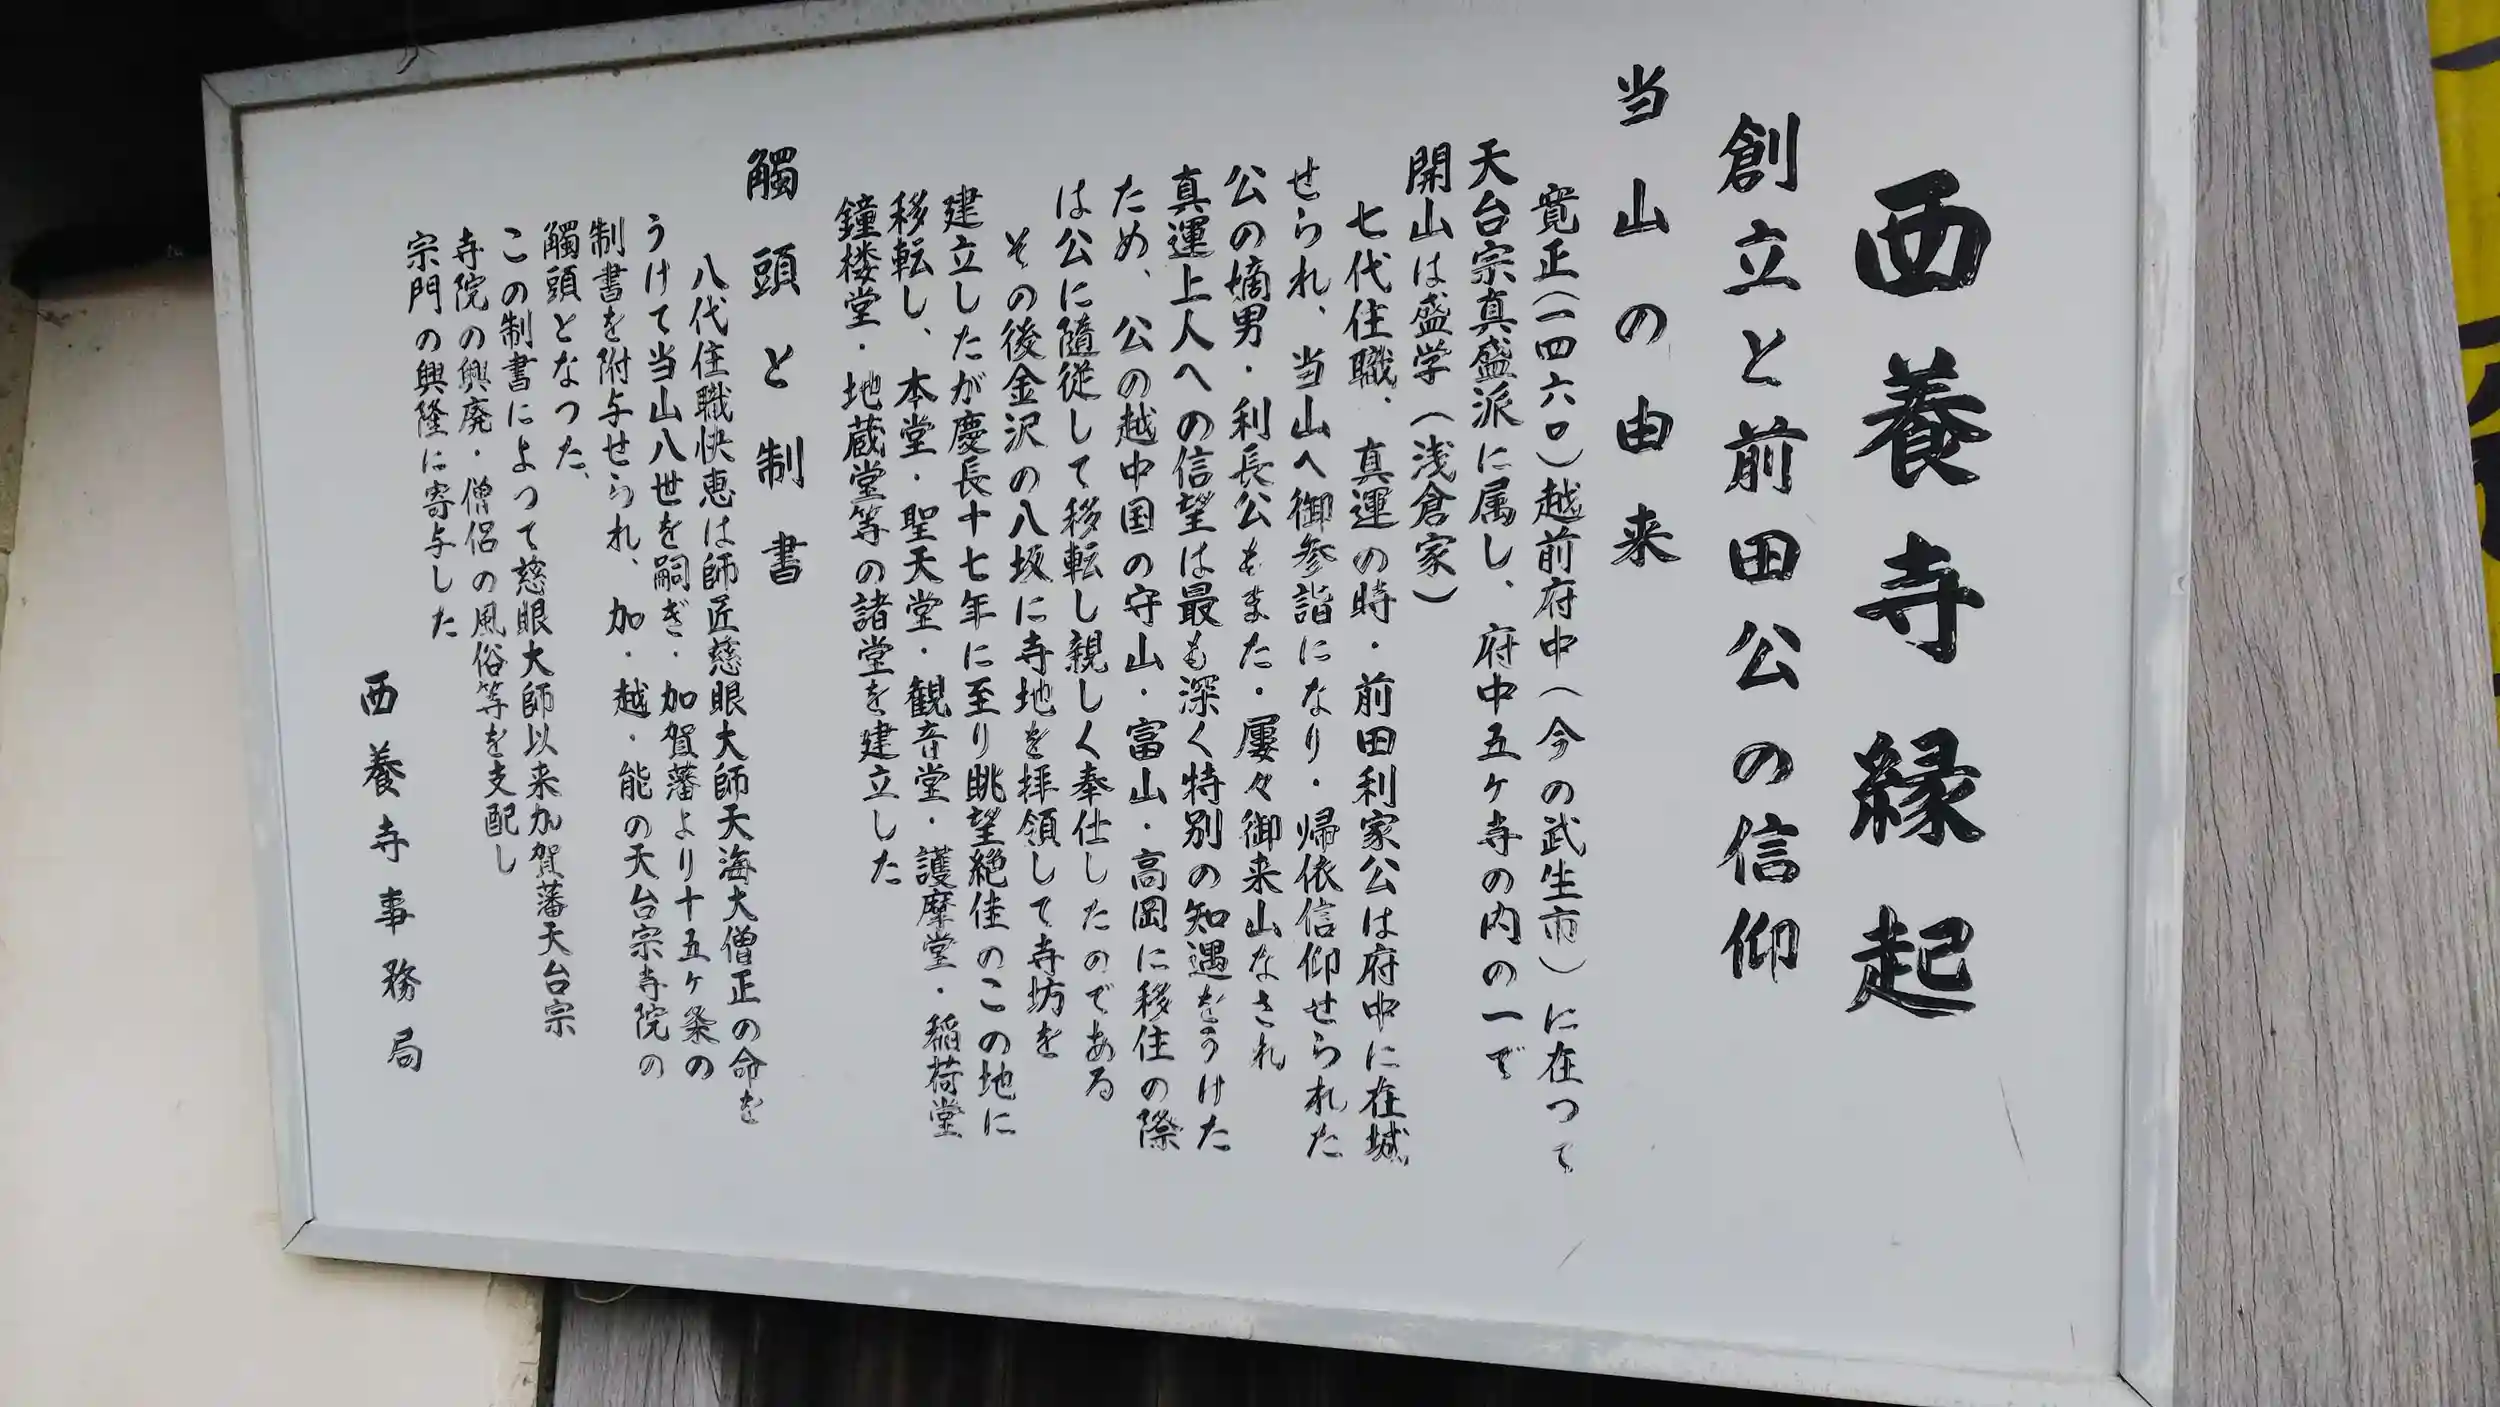 西養寺縁起
創立と前田公の信仰
当山の由来
寛正(一四六〇)越前府中(今の武生市)に在つて
天台宗真盛派に属し、府中五ヶ寺の内の一で
開山は盛学(浅倉家)
七代住職、真運の時・前田利家公は府中に在城
せられ、当山へ御参詣になり・帰依信仰せられた
公の嫡男・利長公もまた・屢々御来山なされ
真運上人への信望は最も深く特別の知遇をうけた
ため、公の越中国の守山・富山・高岡に移住の際
は公に隨従して移転し親しく奉仕したのである
その後金沢の八坂に寺地を拝領して寺坊を
建立したが慶長十七年に至り眺望絶佳のこの地に
移転し、本堂・聖天堂・観音堂・護摩堂・稲荷堂
鐘楼堂・地蔵堂等の諸堂を建立した
觸頭と制書
八代住職快恵は師匠慈眼大師天海大僧正の命を
うけて当山八世を嗣ぎ・加賀藩より十五ヶ条の
制書を附与せられ、加・越・能の天台宗寺院の
觸頭となつた、
この制書によつて慈眼大師以来加賀藩天台宗
寺院の興廃・僧侶の風俗等を支配し
宗門の興隆に寄与した
西養寺事務局